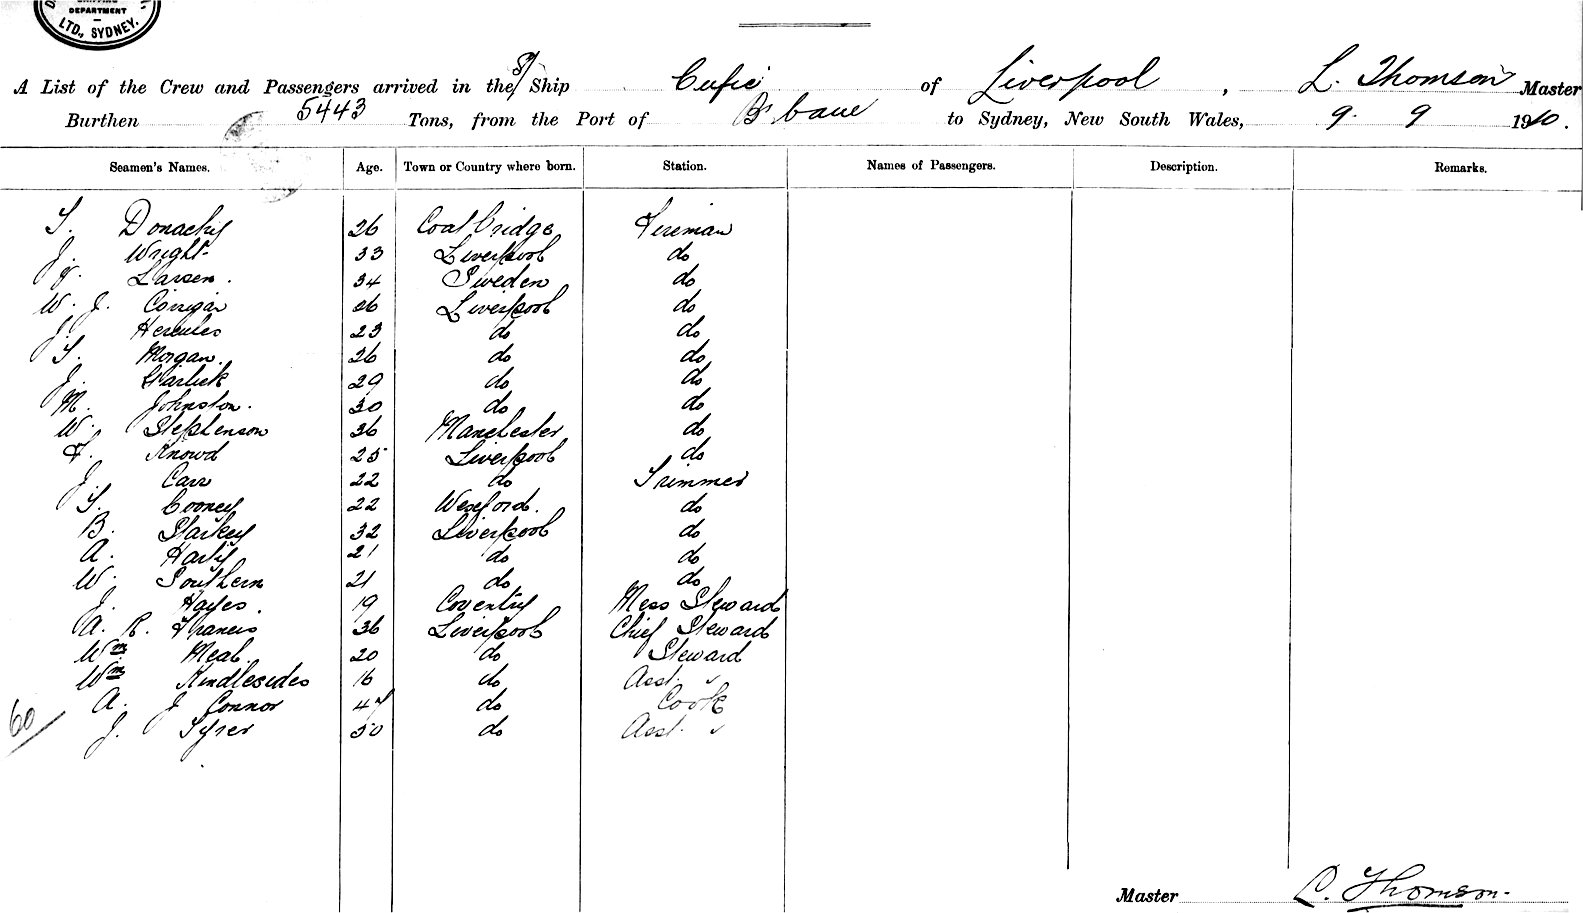 DEPARTMENT
LTD., SYDNEY.
A List of the Crew and Passengers arrived in the S/ Ship Cufic of Liverpool, L. Thomson Master
Burthen 5443 Tons, from the Port of Bsbane to Sydney, New South Wales, 9. 9 1910.
Seamen's Names. Age. Town or Country where born. Station. Names of Passengers. Description. Remarks.
T. Donachy 26 Coatbridge Fireman
J. Wright 33 Liverpool do
J. Larsen. 34 Sweden do
W. J. Corrigan 26 Liverpool do
J. Hercules 23 do do
T. Morgan. 26 do do
J. Garlick 29 do do
M. Johnston. 30 do do
W. Stephenson 36 Manchester do
F. Knowd 25 Liverpool do
J. Carr 22 do Trimmer
T. Cooney 22 Wexford. do
B. Starkey 32 Liverpool do
A. Harty 21 do do
W. Southern 21 do do
J. Hayes. 19 Coventry Mess Steward
A. R. Francis 36 Liverpool Chief Steward
Wm Meal. 20 do Steward
Wm Kindlesides 16 do Asst. "
A. J Connor 47 do Cook
60/ J. Tyrer 50 do Asst. "
Master L. Thomson.